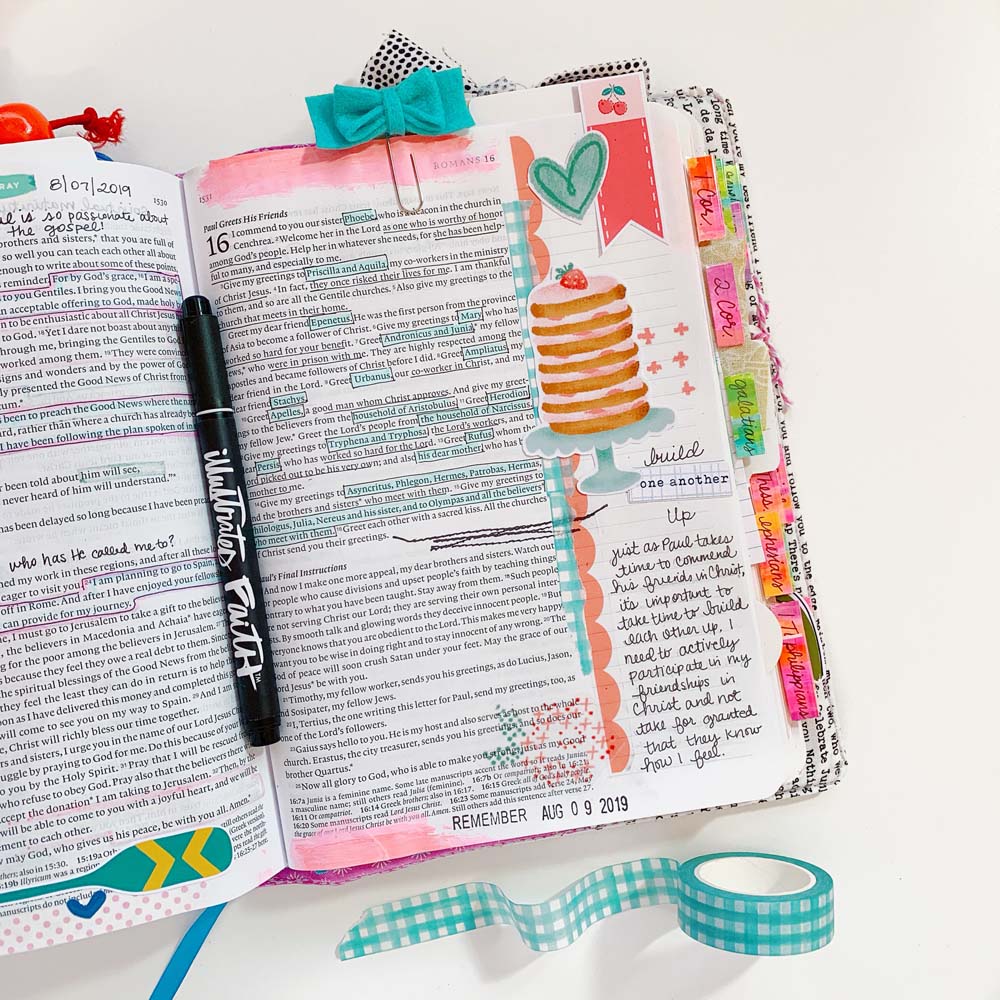 RAY
8/07/2019
1530
is so passionate about
the gospel!
brothers and sisters,* that you are full of
so well you can teach each other all about
enough to write about some of these points,
s reminder. For by God's grace, 16I am a spe
to you Gentiles. I bring you the Good News
n acceptable offering to God, made holy b
on to be enthusiastic about all Christ Jesus
18Yet I dare not boast about anyth
hrough me, bringing the Gentiles to God
worked among them. 19They were convinc
signs and wonders and by the power of God
ly presented the Good News of Christ from
um.*
been to preach the Good News where the n
ard, rather than where a church has already b
I have been following the plan spoken of in
r been told about him will see,
never heard of him will understand."*
has been delayed so long because I have been preac
who has He called me to?
hed my work in these regions, and after all these l
eager to visit you. 24I am planning go to Spain,
off in Rome. And after I have enjoyed your fellows
can provide for my journey.
I must go to Jerusalem to take a gift to the believe
in Macedonia and Achaia* have eage
ng for the poor among the believers in Jerusalem.
s because they feel they owe a real debt to them. Since
the spiritual blessings of the Good News from the be
y feel the least they can do in return is to help th
oon as I have delivered this money and completed this g
will come to see you on my way to Spain. 29And I am s
e, Christ will richly bless our time together.
rs and sisters, I urge you in the name of our Lord Jesus Chr
uggle by praying to God for me. Do this because of your
o you by the Holy Spirit. 31Pray that I will be rescued
who refuse to obey God. Pray also that the believers the
ccept the donation* I am taking to Jerusalem. 32Then, by the
will be able to come to you with a joyful heart, and we will be
ement to each other.
may God, who gives us his peace, be with you all. Amen.*
thers; also in 15:30.
19b Illyricum was a region
manuscripts do not includ
illustrated FAITH™
1531
ROMANS 16
Paul Greets His Friends
16 I commend to you our sister Phoebe, who is a deacon in the church in
Cenchrea. 2Welcome her in the Lord as one who is worthy of honor
among God's people. Help her in whatever she needs, for she has been help-
ful to many, and especially to me.
3Give my greetings to Priscilla and Aquila, my co-workers in the ministry
of Christ Jesus. 4In fact, they once risked their lives for me. I am thankful
to them, and so are all the Gentile churches. 5Also give my greetings to the
church that meets in their home.
Greet my dear friend Epenetus. He was the first person from the province
of Asia to become a follower of Christ. 6Give my greetings to Mary, who has
worked so hard for your benefit. 7Greet Andronicus and Junia,* my fellow
Jews,* who were in prison with me. They are highly respected among the
apostles and became followers of Christ before I did. 8Greet Ampliatus, my
dear friend in the Lord. 9Greet Urbanus, our co-worker in Christ, and my
dear friend Stachys.
Apelles, a good man whom Christ approves. And give my greet-
the household of Aristobulus. 11Greet Herodion,
my fellow Jew.* Greet the Lord's people from the household of Narcissus.
Tryphena and Tryphosa, the Lord's workers, and
dear Persis, who has worked so hard for the Lord. 13Greet Rufus, whom the
Lord picked out to be his very own; and also his dear mother, who has been
mother to me.
Give my greetings to Asyncritus, Phlegon, Hermes, Patrobas, Hermas,
the brothers and sisters* who meet with them. 15Give my greetings to
Philologus, Julia, Nereus and his sister, and to Olympas and all the believers*
who meet with them. 16Greet each other with a sacred kiss. All the churches
Christ send you their greetings.
Paul's Final Instructions
And now I make one more appeal, my dear brothers and sisters. Watch out
for people who cause divisions and upset people's faith by teaching things
contrary to what you have been taught. Stay away from them. 18Such people
are not serving Christ our Lord; they are serving their own personal inter-
By smooth talk and glowing words they deceive innocent people. 19But
everyone knows that you are obedient to the Lord. This makes me very happy.
want you to be wise in doing right and to stay innocent of any wrong. 20The
God of peace will soon crush Satan under your feet. May the grace of our
Lord Jesus* be with you.
21Timothy, my fellow worker, sends you his greetings, as do Lucius, Jason,
and Sosipater, my fellow Jews.
22I, Tertius, the one writing this letter for Paul, send my greetings, too, as
one of the Lord's followers.
23Gaius says hello to you. He is my host and also serves as host to the whole
church. Erastus, the city treasurer, sends you his greetings, and so does our
brother Quartus.*
25Now all glory to God, who is able to make you strong, just as my Good
16:7a Junia is a feminine name. Some late manuscripts accent the word so it reads Junias,
a masculine name; still others read Julia (feminine). 16:7b Or compatriots; also in 16:21.
16:11 Or compatriot. 16:14 Greek brothers; also in 16:17. 16:15 Greek all of God's holy people.
16:20 Some manuscripts read Lord Jesus Christ. 16:23 Some manuscripts add verse 24, May
the grace of our Lord Jesus Christ be with you all. Amen. Still others add this sentence after verse 27.
build
one another
up
just as Paul takes
time to commend
his friends in Christ,
it's important to
take time to build
each other up. I
need to actively
participate in my
friendships in
Christ and not
take for granted
that they know
how I feel.
REMEMBER AUG 09 2019
1 Cor.
2 Cor
galatians
ephesians
philippians